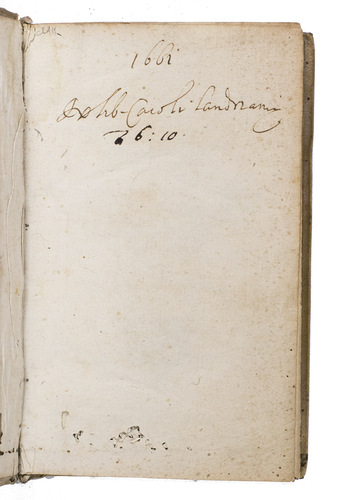 1661
Ex lib. Caroli Landriani
6:10.